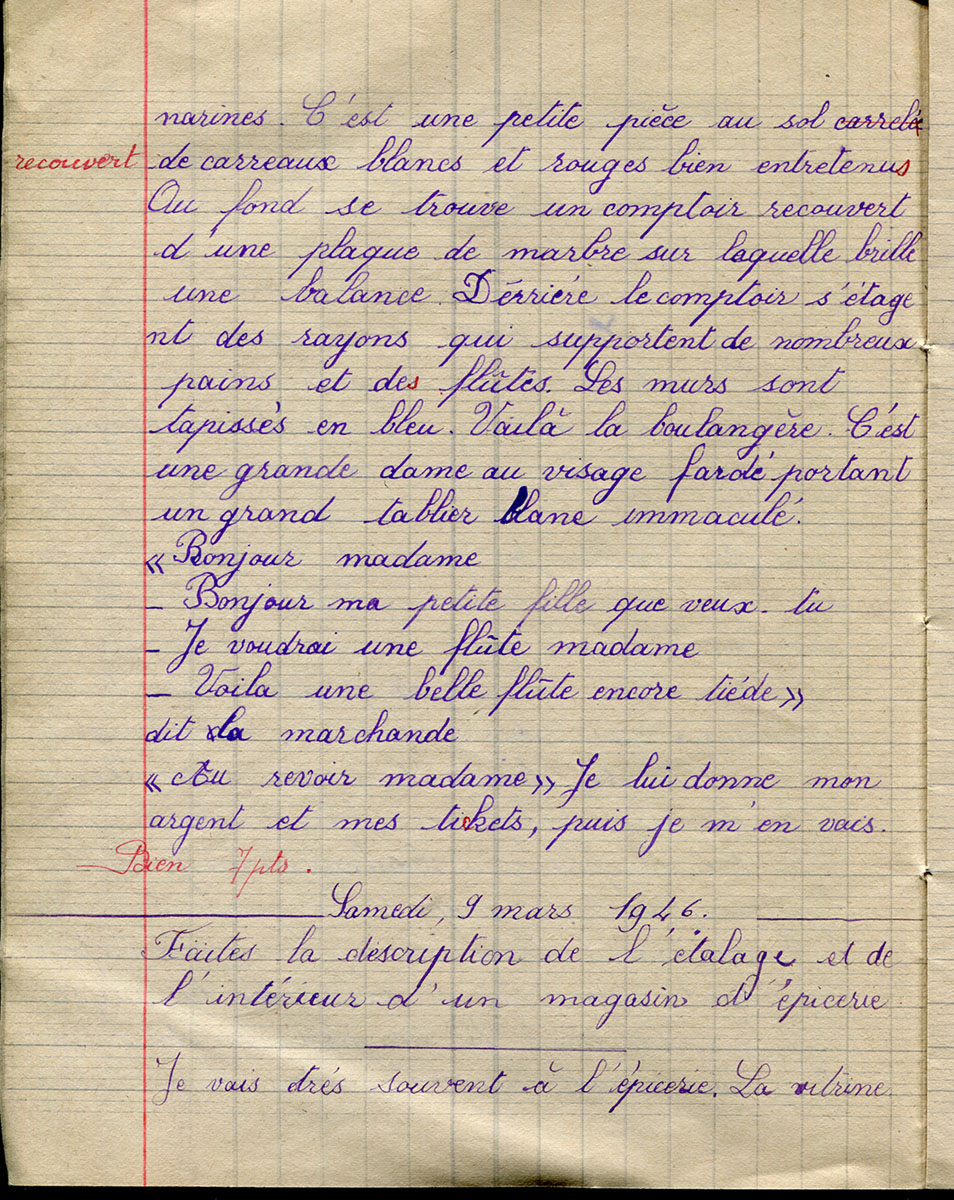 narines. C'est une petite pièce au sol carrelé
recouvert de carreaux blancs et rouges bien entretenus
Au fond se trouve un comptoir recouvert
d'une plaque de marbre sur laquelle brille
une balance. Dérriére le comptoir s'étage
nt des rayons qui supportent de nombreux
pains et des flûtes. Les murs sont
tapissés en bleu. Voilà la boulangère. C'est
une grande dame au visage fardé portant
un grand tablier blanc immaculé.
« Bonjour madame
– Bonjour ma petite fille que veux-tu
– Je voudrai une flûte madame
– Voila une belle flûte encore tiéde »
dit la marchande
« Au revoir madame » Je lui donne mon
argent et mes tickets, puis je m'en vais.
Bien 7pts.
Samedi, 9 mars 1946.
Faites la description de l'étalage et de
l'intérieur d'un magasin d'épicerie
Je vais trés souvent à l'épicerie. La vitrine